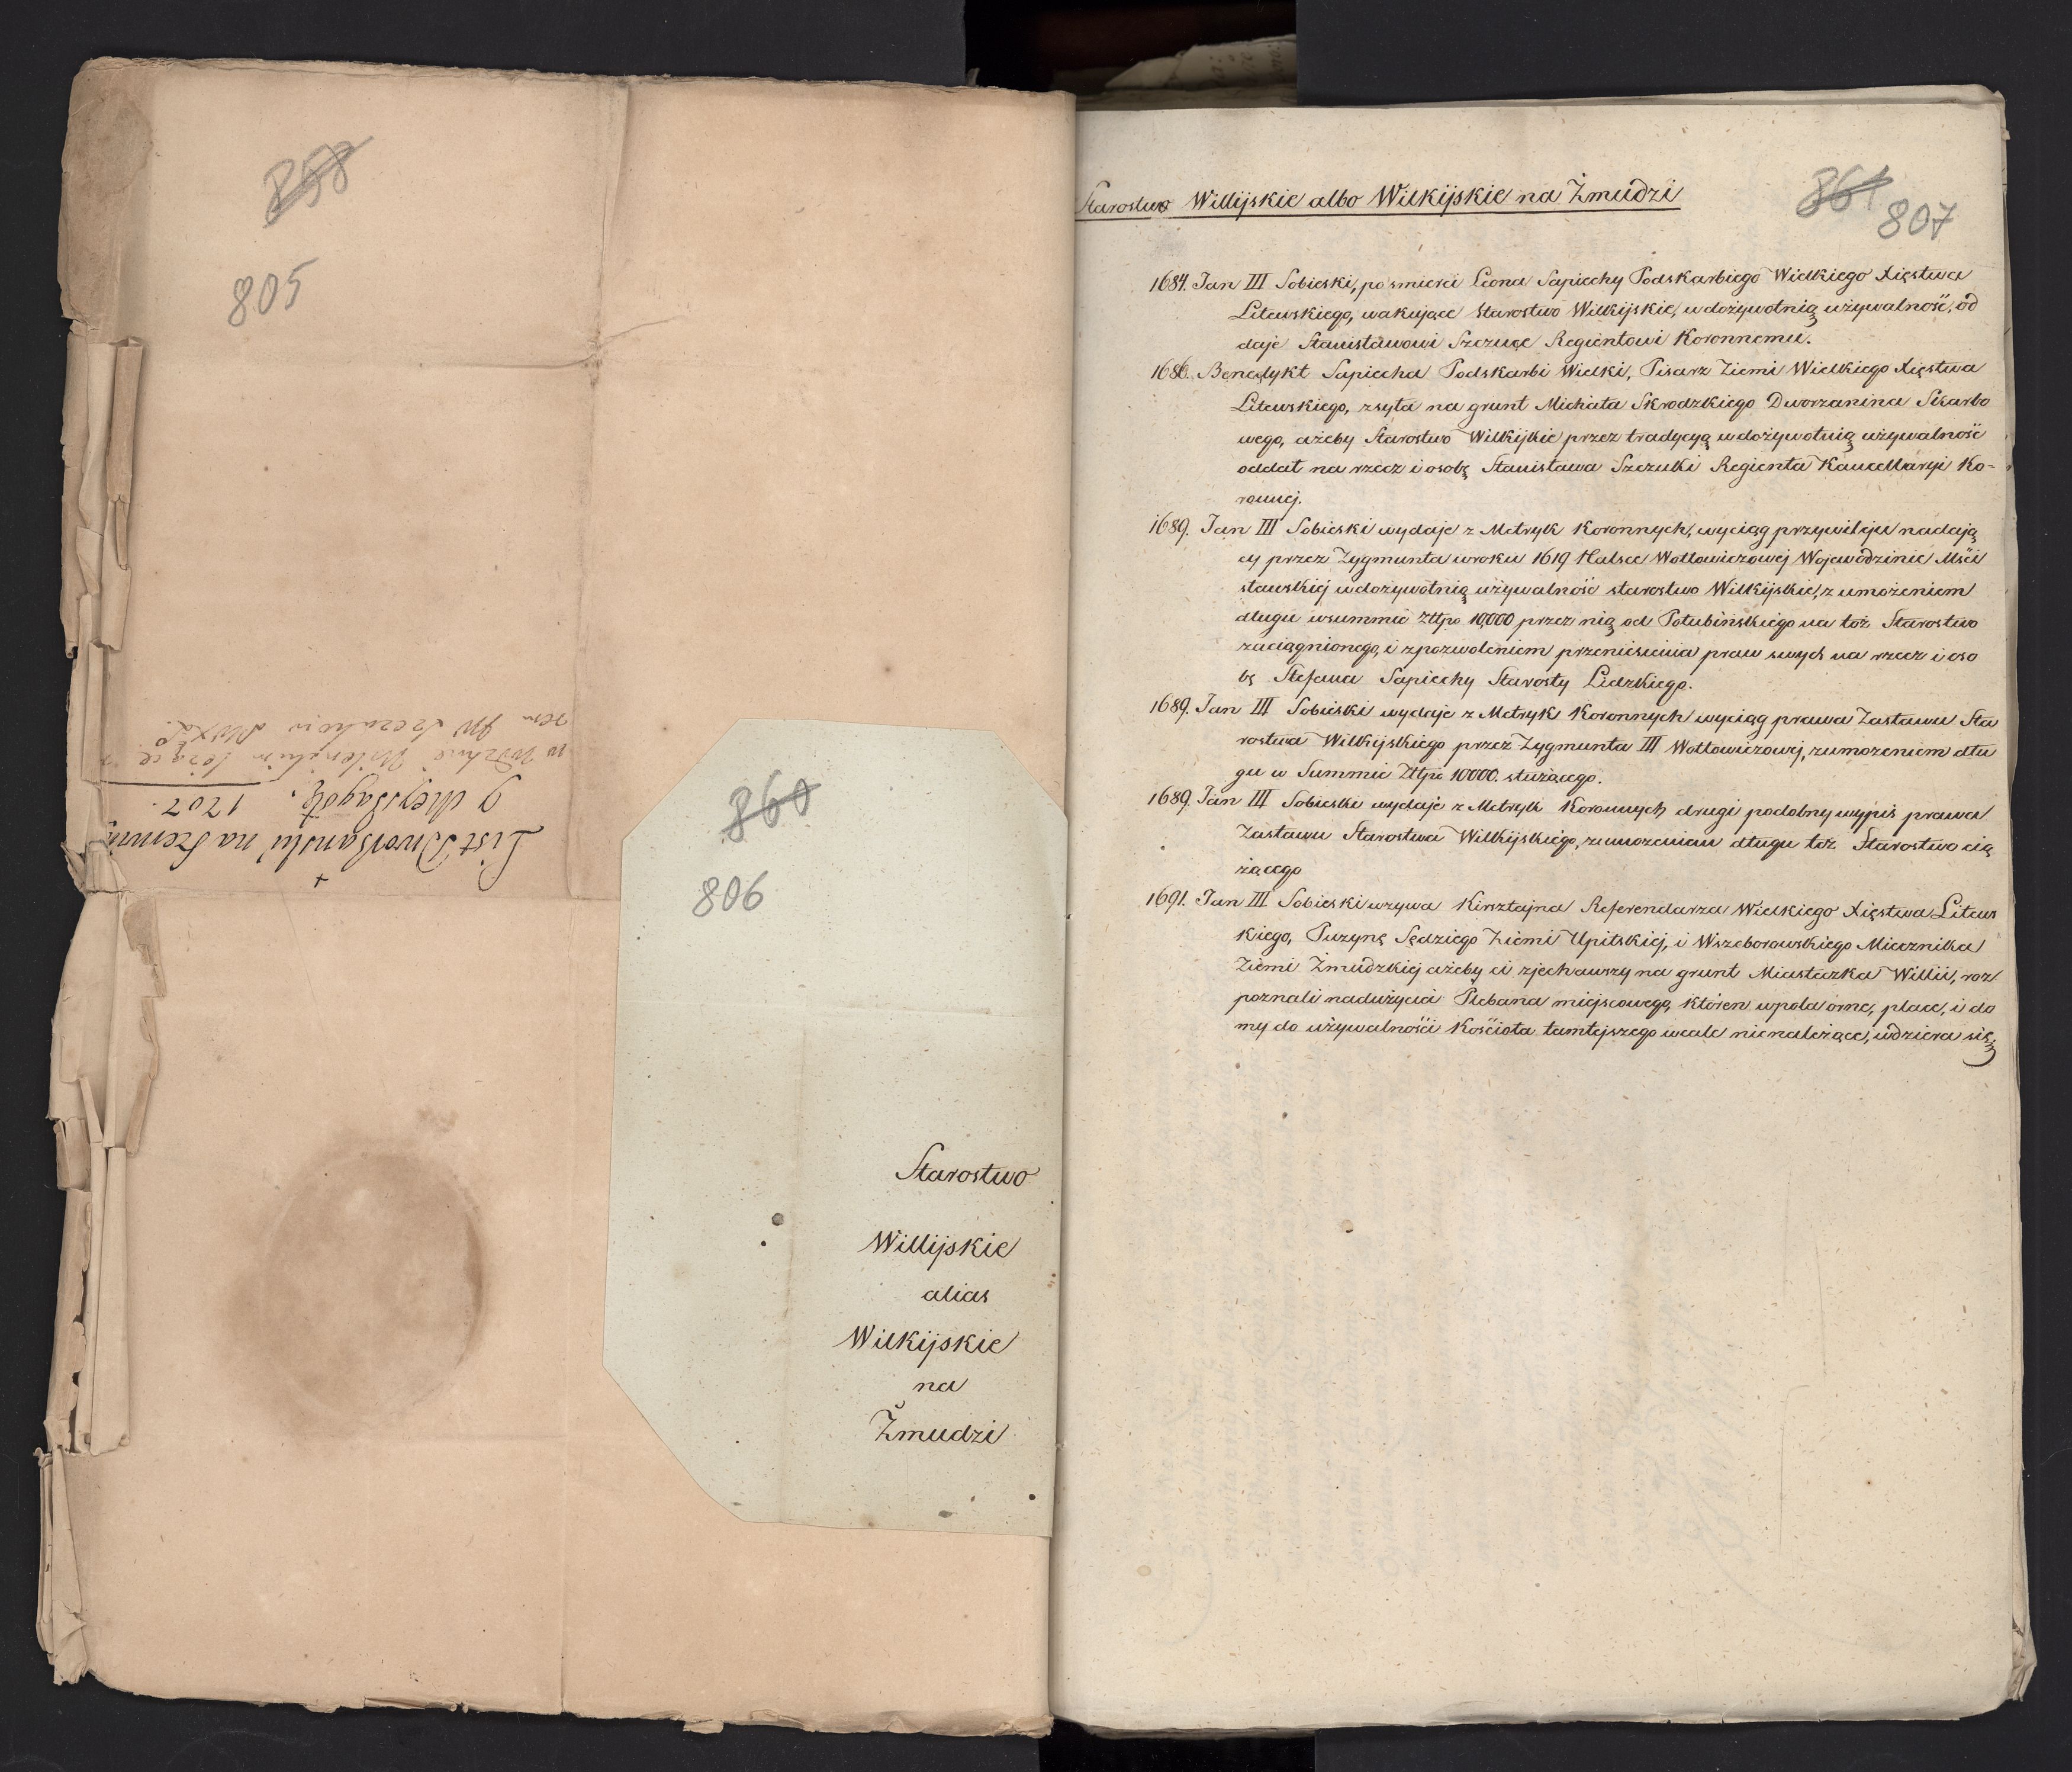 858
805
List Dworzanski na
9 Meyszagołę. 1707.
860
806
Starostwo
Willijskie
alias
Wilkijskie
na
Żmudzi
Starostwo Willijskie albo Wilkijskie na Żmudzi
861
807
1684. Jan III Sobieski, po smierci Leona Sapiechy Podskarbiego Wielkiego Xięstwa
Litewskiego, wakujące Starostwo Wilkijskie, w dożywotnią używalność, od
daje Stanisławowi Szczuce Regientowi Koronnemu.
1686. Benedykt Sapiecha Podskarbi Wielki, Pisarz Ziemi Wielkiego Xięstwa
Litewskiego, zsyła na grunt Michała Skrodzkiego Dworzanina Skarbo
wego, ażeby Starostwo Wilkijkie przez tradycyą w dożywotnią używalność
oddał na rzecz i osobę Stanisława Szczuki Regienta Kancellaryi Ko-
ronnej.
1689. Jan III Sobieski wydaje z Metryk Koronnych, wyciąg przywileju nadają
cy przez Zygmunta w roku 1619 Halsce Wołłowiczowej Wojewodzinie Mści
sławskiej w dożywotnią używalność starostwo Wilkijskie, z umożeniem
długu w summie Złtpo 10,000 przez nią od Połubińskiego na toż Starostwo
zaciągnionego, i z pozwoleniem przeniesienia praw swych na rzecz i oso
bę Stefana Sapiechy Starosty Lidzkiego.
1689. Jan III Sobieski wydaje z Metryk Koronnych wyciąg prawa Zastawu Sta
rostwa Wilkijskiego przez Zygmunta III Wołłowiczowej, z umozeniem dłu
gu w Summie Złtpo 10000. służącego.
1689. Jan III Sobieski wydaje z Metryk Koronnych drugi podobny wypis prawa
Zastawu Starostwa Wilkijskiego, z umozeniem długu toż Starostwo cią
żącego
1691. Jan III Sobieski wzywa Kirsztajna Referendarza Wielkiego Xięstwa Litews
kiego, Puzynę Sędziego Ziemi Upitskiej, i Wszeborowskiego Miecznika
Ziemi Żmudzkiej ażeby ci zjechawszy na grunt Miasteczka Willii, roz
poznali nadużycia Plebana miejscowego, któren w pola orne, place, i do
my do używalności Kościoła tamtejszego wcale nienależące, wdziera się